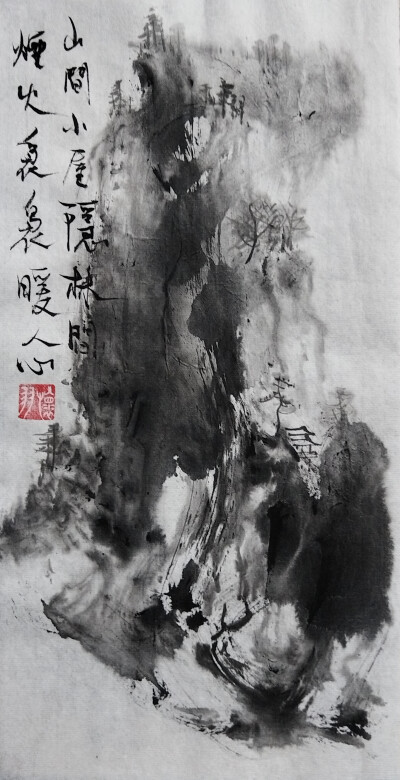 山間小屋隱林間
煙火裊裊暖人心